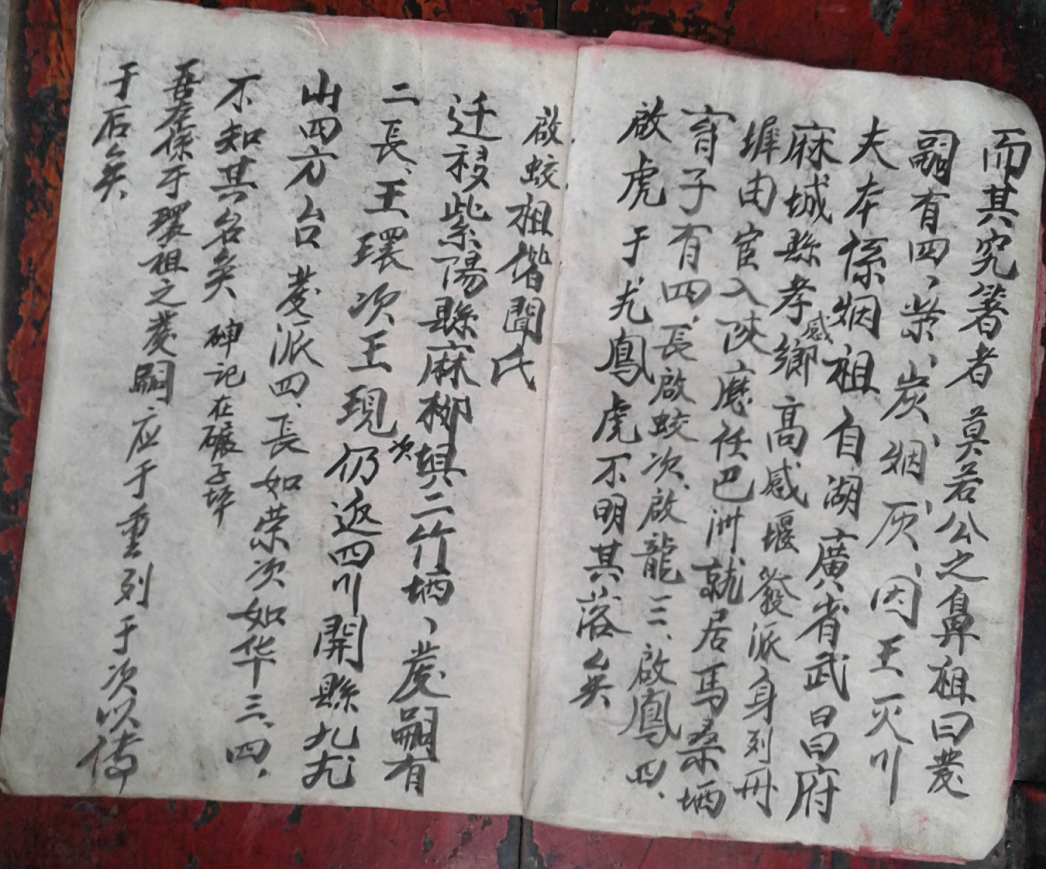 而其究著者莫若公之鼻祖曰發
嗣有四、柴、炭、烟、灰、因王灭川
夫本係烟祖自湖廣省武昌府
麻城縣孝感鄉高感堰發派身列丹
墀由官入陝應任巴州就居馬桑塆
育子有四、長啟蛟次啟龍三、啟鳳四、
啟虎于尤鳳虎不明其落矣
啟蛟祖偕聞氏
迁移紫陽縣麻柳與二竹塆、發嗣有
二長、王環次王現次仍返四川開縣九龙
山四方台發派四、長如荣次如华三、四、
不知其名矣碑記在碾子坪
吾左係于環祖之發嗣应于重列于次以傳
于后矣